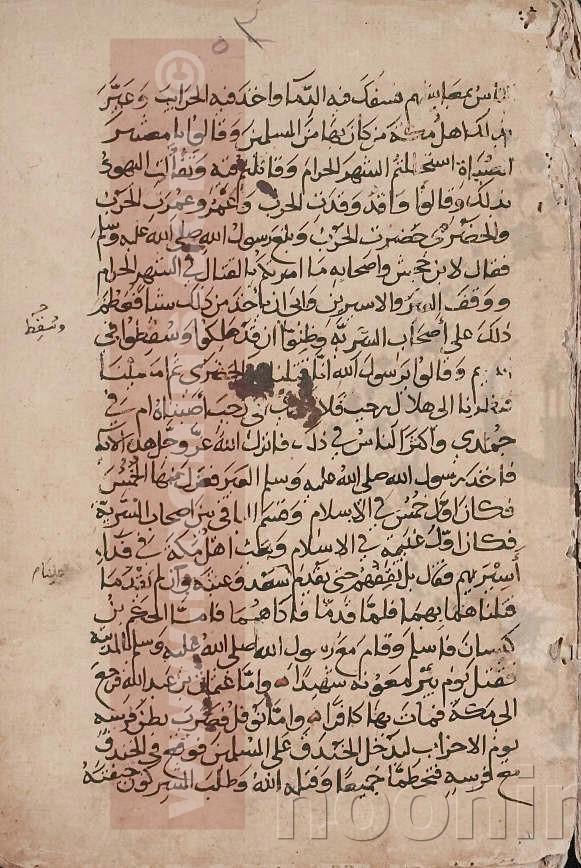 الناس بمعايشهم فسفك فيه الدما واخذ فيه الحرايب وعير
بذلك اهل مكة من كان بها من المسلمين وقالوا يا معشر
الصباة استحللتم الشهر الحرام وقاتلتم فيه وتفألت اليهود
بذلك وقالوا واقد وقدت الحرب وعمرو عمرت الحرب
والحضرمى حضرت الحرب وبلغ رسول الله صلى الله عليه وسلم
فقال لابن جحش واصحابه ما امرتكم بالقتال في الشهر الحرام
ووقف العير والاسيرين وابى ان ياخذ من ذلك شيا فعظم
ذلك على اصحاب السرية وظنوا ان قد هلكوا وسقطوا في
ايديهم وقالوا يرسول الله انا قتلنا الحضرمى ثم امسينا
فنظرنا الى هلال رجب فلا ندرى افي رجب اصبناه ام في
جمادى واكثر الناس في ذلك فانزل الله عز وجل هذه الاية
فاخذ رسول الله صلى الله عليه وسلم العير فعزل منها الخمس
فكان اول خمس في الاسلام وقسم الباقى بين اصحاب السرية
فكان اول غنيمة في الاسلام وبعث اهل مكة في فدا
أسيريهم فقال بل نقفهم حتى يقدم سعد وعتبه وان لم يقدما
قتلناهما بهما فلما قدما فاداهما فاما الحكم بن
كيسان فاسلم وقام مع رسول الله صلى الله عليه وسلم بالمدينة
فقتل يوم بير معونة شهيدا واما عثمان بن عبد الله فرجع
الى مكة فمات بها كافرا واما نوفل فضرب بطن فرسه
يوم الاحزاب ليدخل الخندق على المسلمين فوقع في الخندق
مع فرسه فتحطما جميعا وقتله الله وطلب المشركون جيفته
وسقط
noonin